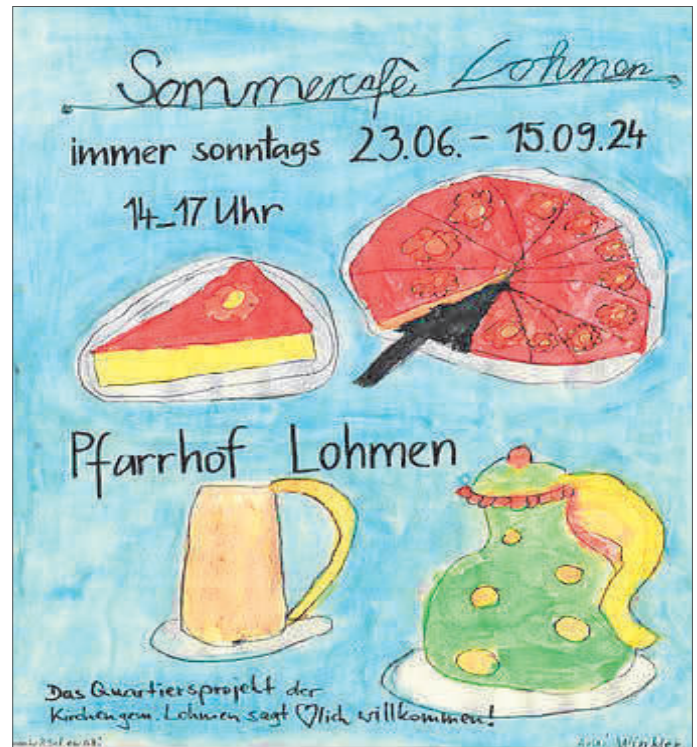 Sommercafé Lohmen
immer sonntags 23.06. – 15.09.24
14–17 Uhr
Pfarrhof Lohmen
Das Quartiersprojekt der
Kirchengem. Lohmen sagt ♡lich willkommen!
Winkler